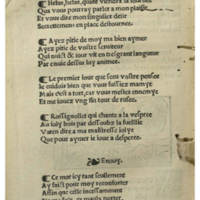 Helas, helas, quant viendra le iour
Que vous pourray parler a mon plaisir
Et vous dire mon singulier desir
Secrettement en place destournee.
Ayez pitie de moy ma bien aymee
Ayez pitie de vostre seruiteur
Qui nuict & iour vit en
Par enuie dessus luy animee.
Le premier iour que sens vostre pensee
Ie cuidois bien que vous fussiez mamye
Mais cest a tort, car vous mestes ennemye
Et me iouez vng fin tour de rusee.
Rossignollet qui chante a la vespree
Au ioly bois par dessoubz la fueillee
Va ten dire a ma maistresse iolye
Que pour aymer ie ioue a desperee.
Enuoy.
Ce mot icy sans
Ay faict pour moy reconforter
Affin que celle incessamment